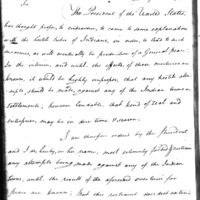 Sir
The President of the United States,
has thought proper, to endeavour, to come to some explanation
with the hostile tribes of Indians, in order, to that
measures, as will eventually be productive of a General peace.
In the interim, and until the effects, of those measures are
known, it would be highly improper, that any hostile at-
tempts, should be made, against any of the Indian towns or
settlements; however laudable that kind of zeal and
enterprize, may be on due time & season.
I am therefore ordered by the President
and I do hereby, in his name, most solemnly forbid
any attempts being made against any of the Indian
towns, until the result of the aforesaid overtures for
peace are known. But this restraint does not